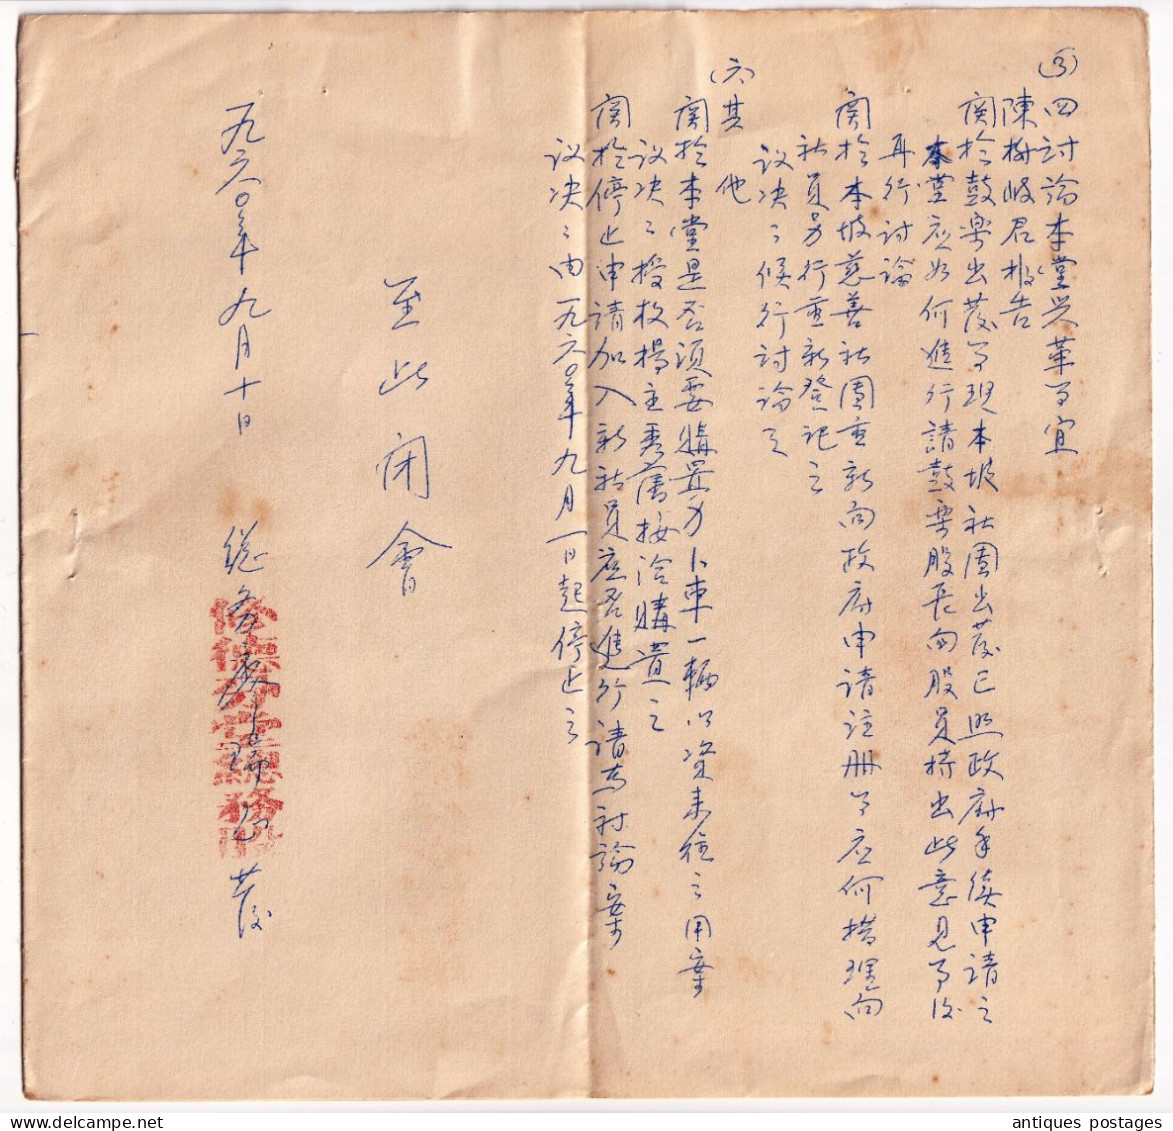 (5) 四討論本堂兴革事宜
陳梅岐君報告
関於鼓樂出發事現本坡社團出發已照政府手續申請之
本堂应如何進行請鼓樂股長向股員持出此意見事後
再行討論
関於本坡慈善社團重新向政府申請註册事应何措理向
社員另行重新登記之
议决：候行討論之
(六) 其他
関於本堂是否須要購置力卜車一輛以資来往之用案
议决：授权楊主秀蕃接洽購置之
関於停止申請加入新社員应否進行請为討論案
议决：由一九六〇年九月一日起停止之
至此闭會
一九六〇年九月十日
總务 瑞 發
德 堂總務
antiques postages